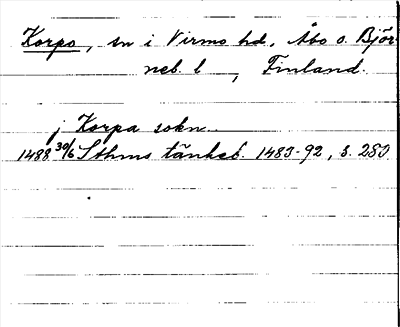 Korpo, sn i Virmo hd, Åbo o. Björ-
neb. l , Finland.
j Korpa sokn
1488 30/6 Sthms tänkeb. 1483-92, s. 280.